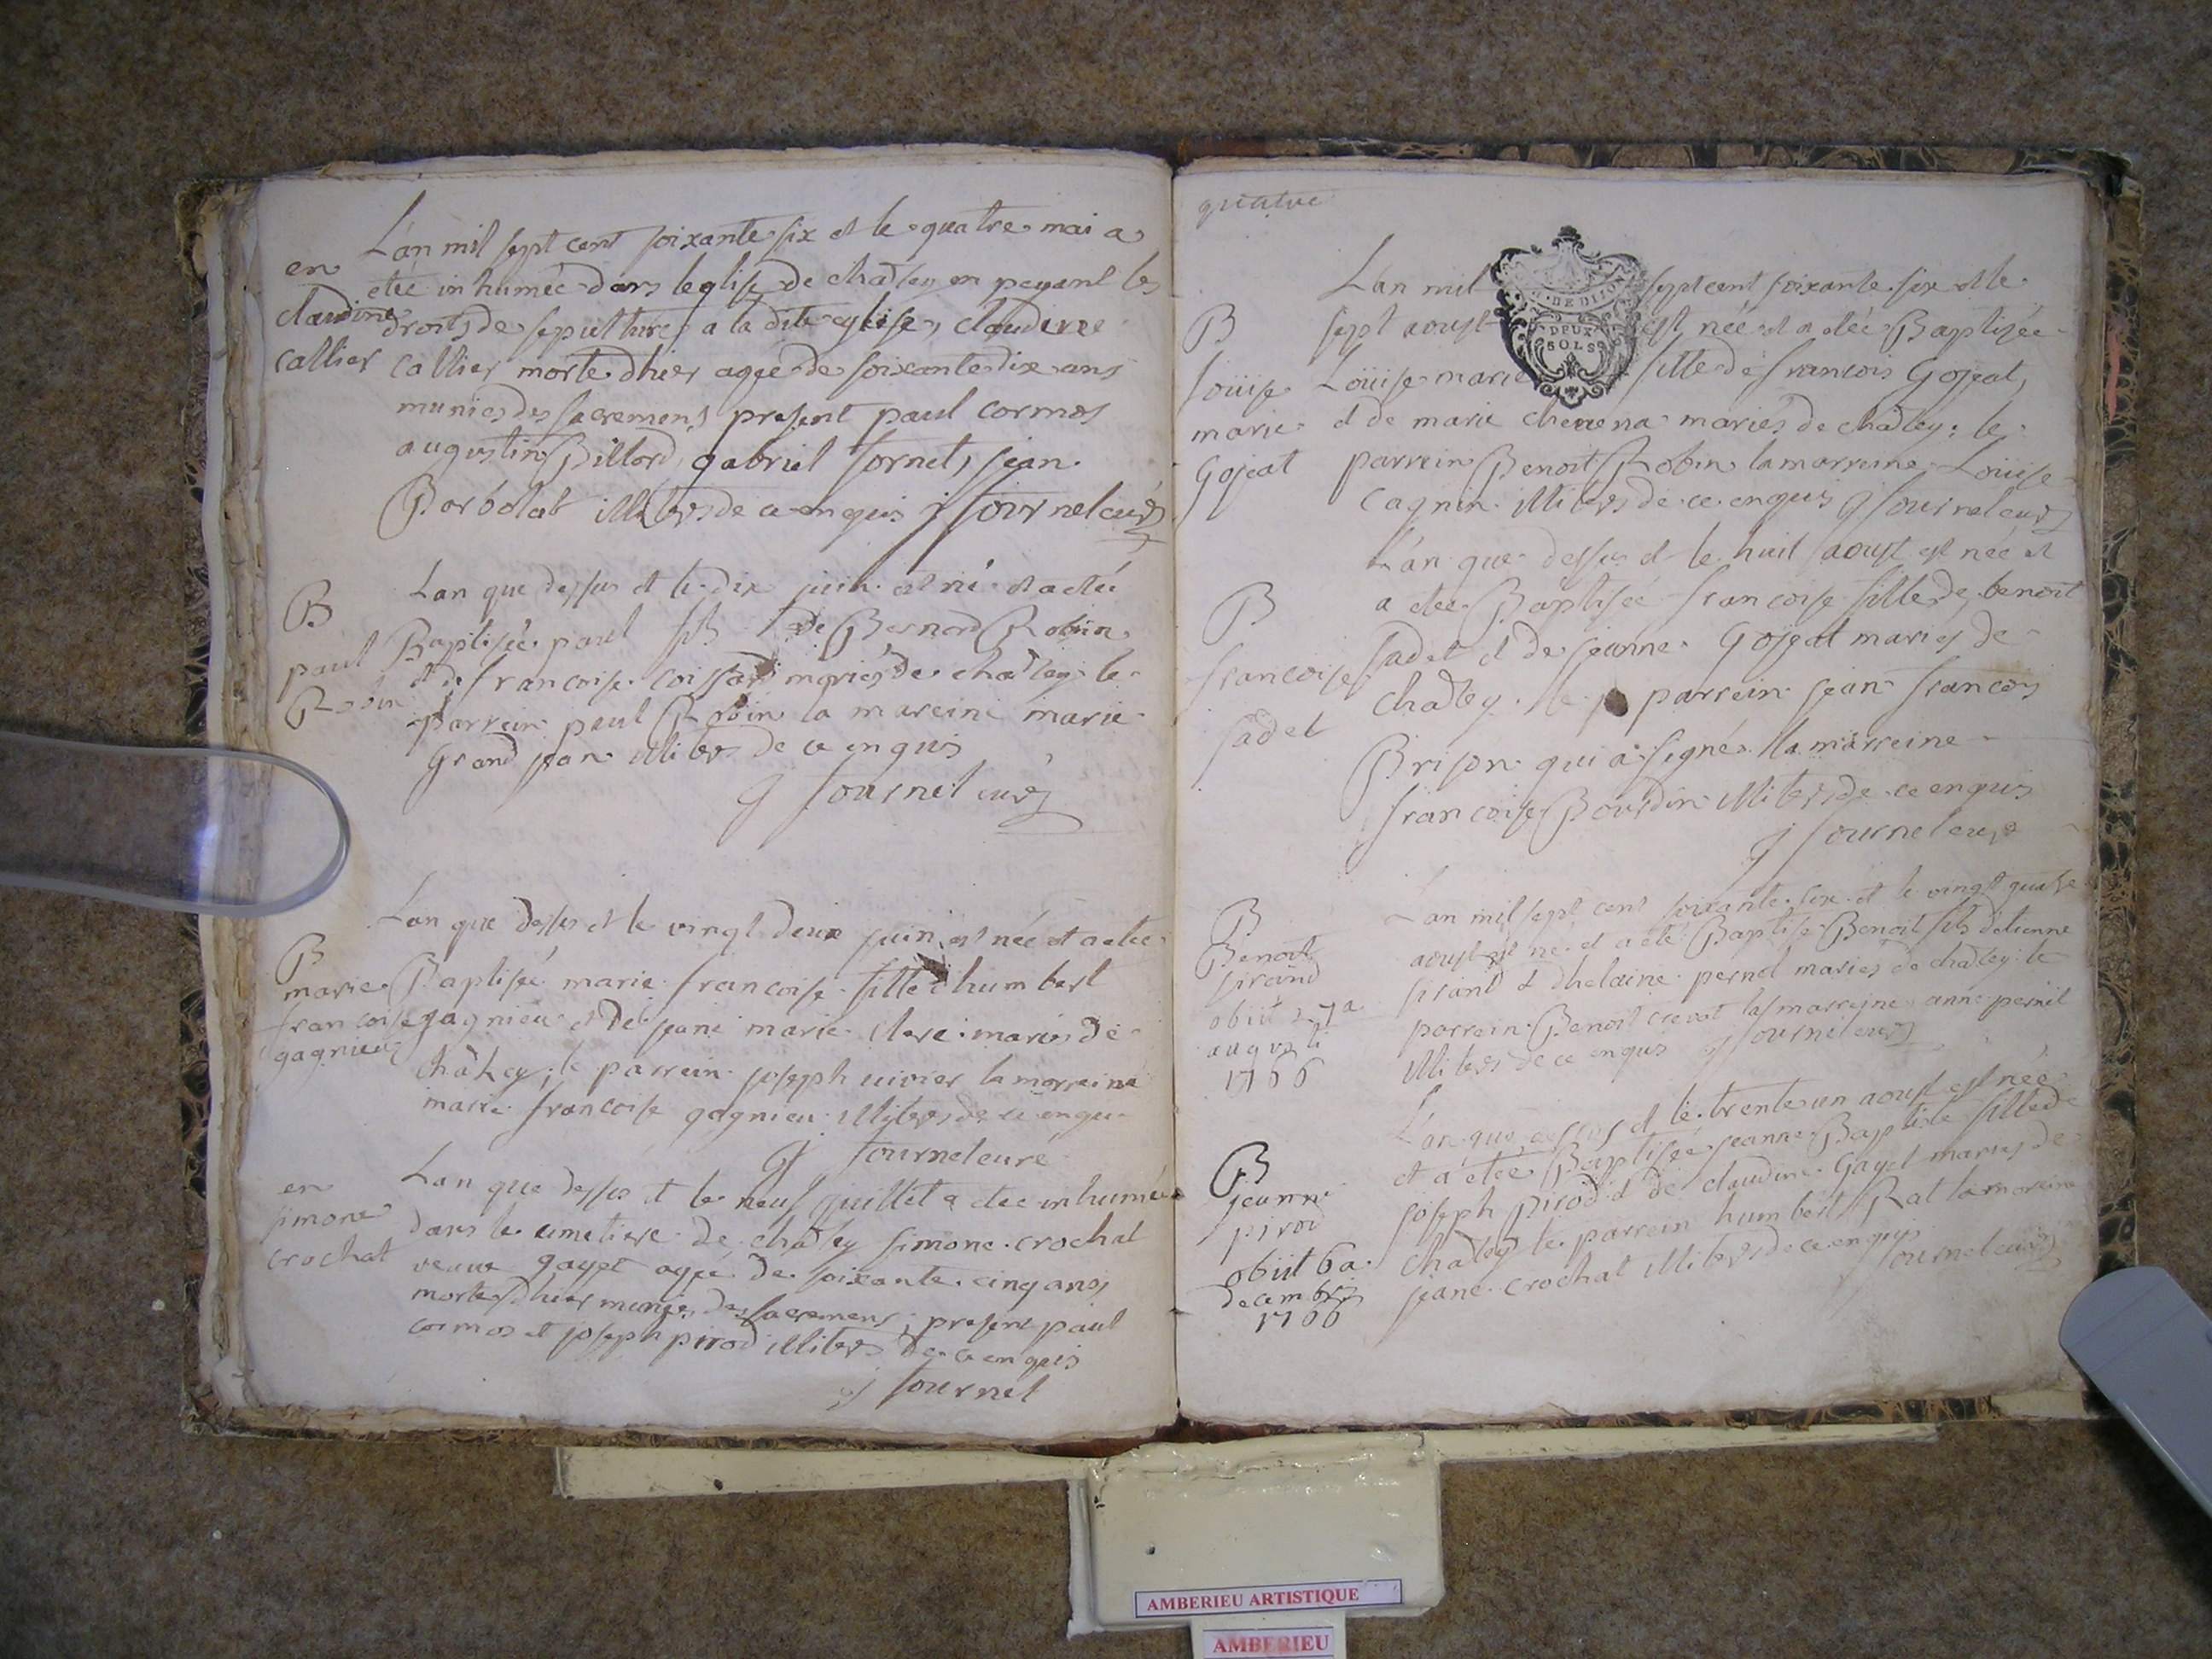 L'an mil sept cent soixante six et le quatre mai a
en
etée inhumée dans leglise de chatley en payant les
claudine
droits de sepulture a la dite eglise, claudine
callier
callier morte dhier agée de soixante dix ans
munies des sacremens present paul cormos
augustin Billord, gabriel fornet, jean
illiters de ce enquis j fournet curé
B
Lan que dessus et le dix juin est né et a etéé
paul
Baptisée paul fils de Bernard Robin
Robin
et de francoise coissard mariés de chatley le
parrein paul Robin la mareine marie
Grand jean illiters de ce enquis
j fournet curé
Lan que dessus et le vingt deux juin est née et a etee
B
marie
Baptisée marie francoise fille d humbert
francoise
gagnieu et de jeane marie clere mariés de
gagnieu
chatley; le parrein joseph vivier la marreine
marie francoise gagnieu illiters de ce enquis
j fournet curé
en
Lan que dessus et le neuf juillet a etee inhumée
simone
dans le cimetiere de chatley simone crochat
crochat
veuve gayet agée de soixante cinq ans
morte dhier munies des sacremens; present paul
cormos et joseph pirod illiters de ce enquis
j fournet
quatre
DE DIJON
DEUX
SOLS
L'an mil sept cent soixante six et le
B
sept aoust est née et a etée Baptisée
Loüise
Loüise marie fille de francois Gojeat,
marie
et de marie mariés de chatley; le
Gojeat
parrein Benoit Robin la marreine Loüise
cagnin illiters de ce enquis j fournet curé
L'an que dessus et le huit aoust est née et
B
a etee Baptisée francoise fille de benoit
francoise
fadet et de jeanne Gojeat mariés de
fadet
chatley. le parrein jean francois
Brison qui a signés la marreine
francoise Bourdin illiters de ce enquis
j fournet curé
B
Lan mil sept cent soixante six et le vingt quatre
Benoit
aoust est né et a eté Baptisé Benoit fils detienne
sirand
sirand et dhelaine pernet mariés de chatley le
obiit 27a
parrein Benoit crevat la marreine anne pernet
augusti
illiters de ce enquis j fournet curé
1766
L'an que dessus et le trente un aoust est née
B
et a etée Baptisée jeanne Baptiste fille de
jeanne
joseph pirod et de claudine Gayet mariés de
pirod
chatley le parrein humbert Rat la marreine
obiit 6a
jeane crochat illiters de ce enquis
decembris
fournet curé
1766
AMBERIEU ARTISTIQUE
AMBERIEU